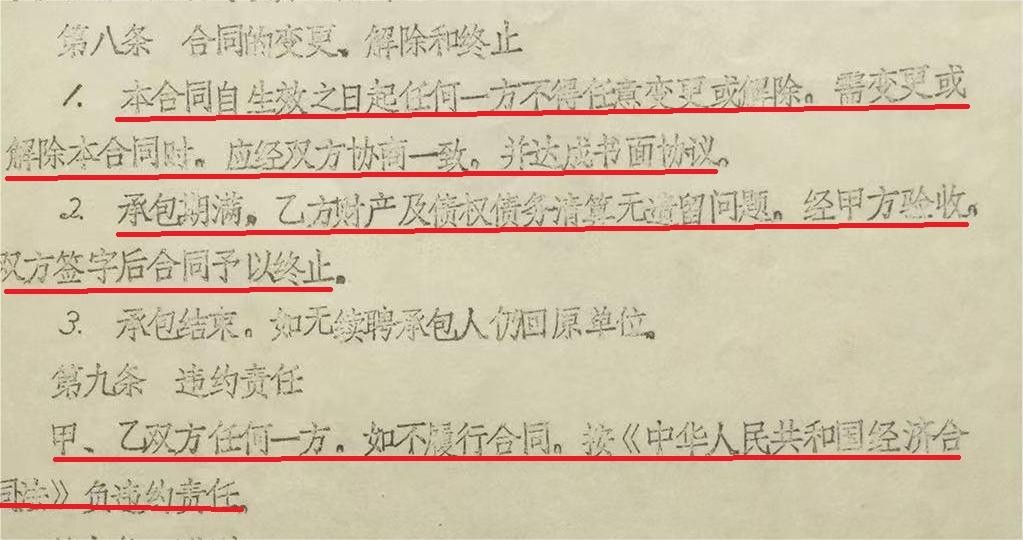 第八条 合同的变更、解除和终止
1. 本合同自生效之日起任何一方不得任意变更或解除。需变更或
解除本合同时。应经双方协商一致。并达成书面协议。
2. 承包期满。乙方财产及债权债务清算无遗留问题。经甲方验收。
双方签字后合同予以终止。
3. 承包结束。如无续聘承包人仍回原单位。
第九条 违约责任
甲、乙双方任何一方。如不履行合同。按《中华人民共和国经济合
同法》负违约责任。